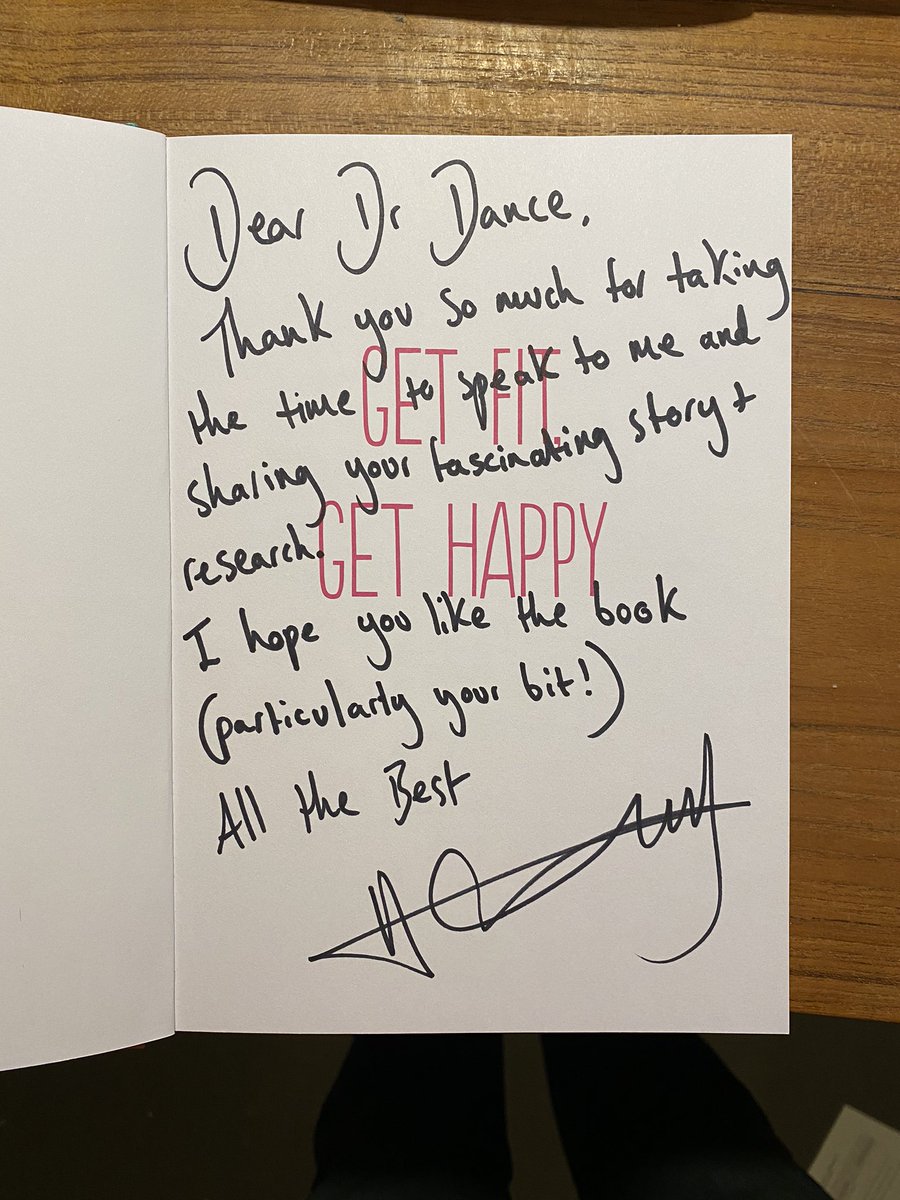 Dear Dr Dance,
Thank you so much for taking
the time to speak to me and
GET FIT,
sharing your fascinating story +
research.
GET HAPPY
I hope you like the book
(particularly your bit!)
All the Best